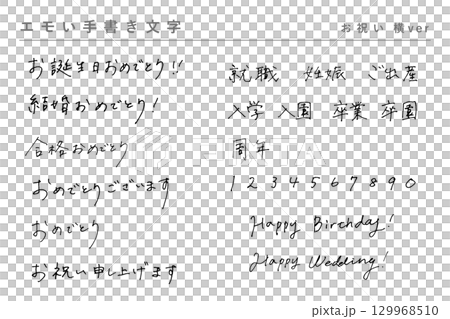 エモい手書き文字
お祝い 横ver
お誕生日おめでとう!!
結婚おめでとう!
合格おめでとう
おめでとうございます
おめでとう
お祝い申し上げます
就職 妊娠 ご出産
入学 入園 卒業 卒園
周年
1 2 3 4 5 6 7 8 9 0
Happy Birthday!
Happy Wedding!
PIXTA
129968510